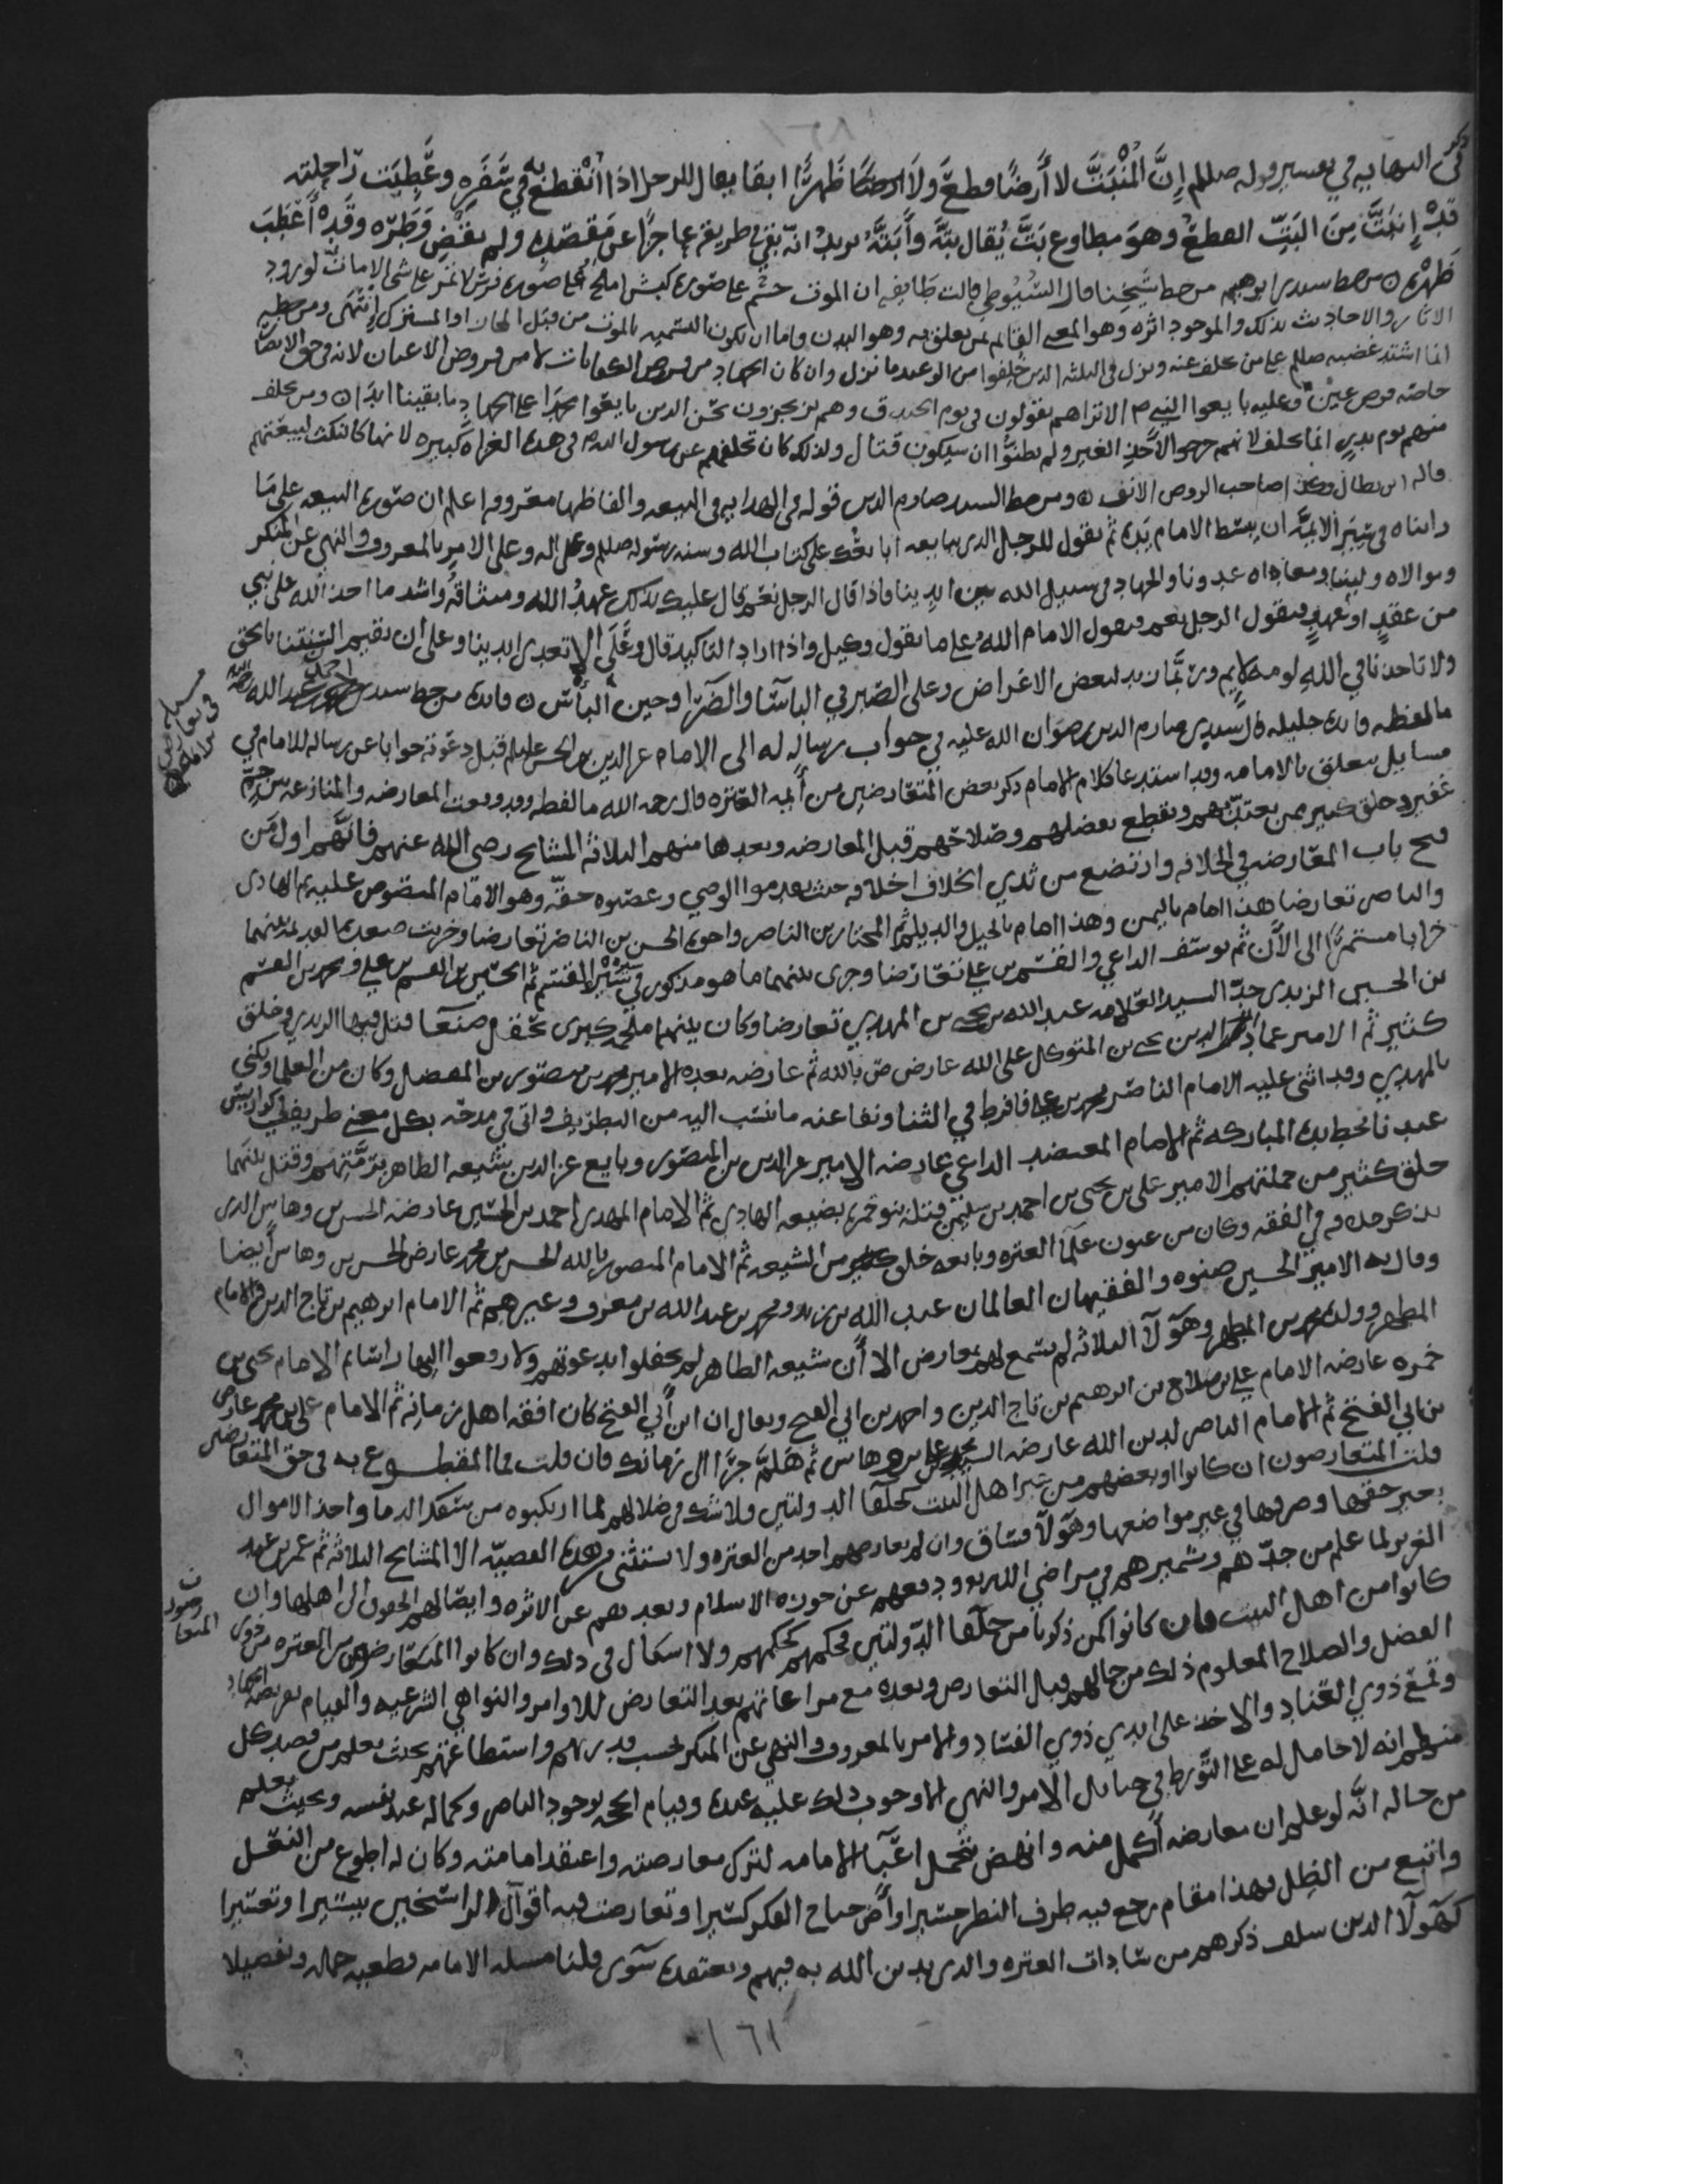 النهايه في تفسير قوله صللم إِنَّ الْمُنْبَتَّ لا أَرضًا قطعَ ولا ظَهرًا ابقا يقال للرجل اذا انْقُطِعَ به في سَفَرِه وعَطِبَت رَاحِلته
قدْ إِنبَتَّ مِنَ البَتِّ القطع وهوَ مطاوع بَتَّ يُقال بَتَّه وأَبَتَّه يريدُ انّه بقي في طريقه عاجزًا عن مَقصَده ولم يقضِ وَطَرَه وقَدْ أَعْطَبَ
ظَهْرَه ۞ من خط سيدي ابرهيم من خط شيخنا قال السّيُوطي قالت طايفه ان الموت جسم على صوره كبش املح على صوره فرس لا تمر على شي الا مات لورود
الاثار والاحاديث بذلك والموجود اثره وهو المعنى القايم بمن يعلق به وهو البدن واما ان تكون التسميه بالموت من قبل المجاز او المشترك انتهى ومن خطه
انما اشتد غضبه صللم على من تخلف عنه ونزل في الثلثه الذين خُلِّفوا من الوعيد ما نزل وان كان الجهاد من فروض الكفايات لا من فروض الاعيان لانه في حق الانصار
خاصه فرض عين وعليه بايعوا النبي صلم الا تراهم يقولون في يوم الخندق وهم يرتجزون نحن الذين بايعوا محمّدا على الجهاد ما بقينا ابدَا ۞ ومن تخلف
منهم يوم بدرٍ انما تخلف لانهم خرجوا لأَخْذِ العير ولم يظنوُّا ان سيكون قتال ولذلك كان تخلفهم عن رسول الله في هذه الغزاه كبيره لانها كالنكث لبيعتهم
قاله ابن بطال صاحب الروض الانف ۞ ومن خط السيد صارم الدين قوله في الهدايه في البيعه والفاظها معروفه اعلم ان صوره البيعه على مَا
رايناه في سِيَر الأيمَّه ان يبسط الامام يَدَه ثم يقول للرجل الذي يبايعه ابايعك على كتاب الله وسنه رسوله صللم وعلى اله وعلى الامر بالمعروف والنهي عن المنكر
وموالاه ولينا ومعاداه عدونا والجهاد في سبيل الله بين ايدينا فاذا قال الرجل نعم قال عليك بذلك عهدُ الله وميثاقُه واشد ما اخذ الله على نبي
من عقدٍ او عهدٍ فيقول الرجل نعم فيقول الامام اللهُ على ما يقول وكيل واذا اراد التاكيد قال وعَلَى الا تعدي ايدينا وعلى ان نقيم السنتنا بالحق
ولا تاخذنا في اللهِ لومة لايم وربَّما زيد لبعض الاغراض وعلى الصّبر في الباسآ والضرّا وحين البأس ۞ فايده من خط سيدي احمد بن عبد الله
ما لفظه فايده جليله قال سيدي صارم الدين رضوَان الله عليه في جواب رسالهٍ له الى الامام عز الدين بن الحسن عليلم قبل دعوَته جوابا عن رساله للامام في
مسايل يتعلق بالامامه وقد استدعا كلام الامام ذكر بعض المتعَارضين من أيمه العتره قال رحمه الله ما لفظه وقد وقعت المعارضه والمنازعه من جمٍّ
غفير وخلق كبير ممن يعتدّ بهم ويقطع بفضلهم وصَلاحهم قبل المعارضه وبعدها منهم الثلاثه المشايخ رضي الله عنهم فانّهم اول من
فتح باب المعَارضه في الخلافه وارتضع من ثدي الخلاف اخلافه حيث تقدموا الوصي وغصَبوه حقّه وهو الامَام المنصُوص عليه ثم الهادى
والناصر تعارضا هذا امام باليمن وهذا امام بالجيل والديلم ثم المختار بن الناصر واخوه الحسن بن الناضر تعارضا وخربت صعده القديمه بينهما
خرابا مستمرًّا الى الآن ثم يوسف الداعي والقسَم بن علي تعَارَضا وجرى بينهما ما هو مذكور في سِيَر القسَم ثم الحسَين بن القسم بن علي ومحمد بن القسم
بن الحسين الزيدي جدّ السيد العَلامه عبد الله بن يحيى بن المهدي تعارضا وكان بينهما ملحمه كبرى بحقل صنعَا قتل فيها الزيدي وخلق
كثير ثم الامير عماد الدين يحيى بن المتوكل على الله عارض ص بالله ثم عارضه بعده الامير محمد بن منصور بن المفضل وكان من العلما ويكنى
بالمهدي وقد اثنى عليه الامام الناصر محمد بن علي فافرط في الثنا ونفا عنه ما نسَب اليه من التطريف واتى في مدحه بكل معنى طريف
عندنا بخط يده المباركه ثم الامام المعتضد الداعي عارضه الامير عز الدين بن المنصور وبايع عز الدين شيعه الظاهر برمّتهم وقتل بينهما
خلق كثير من جملتهم الامير على بن يحيى بن احمد بن سليمن قتله بنو حمزه بضيعه الهادي ثم الامام المهدي احمد بن الحسَين عارضه الحسن بن وهاس الذي
يذكر خلافه في الفقه وكان من عيون علَما العتره وبايعه خلق كثير من الشيعه ثم الامام المنصور بالله الحسن بن محمد عارض الحسن بن وهاس أيضا
وقال به الامير الحسين صنوه والفقيهان العالمان عبد الله بن زيد ومحمد بن عبد الله بن معرف وغيرهم ثم الامام ابرهيم بن تاج الدين والامام
المطهر وولده محمد بن المطهر وهَؤلآ الثلاثه لم يسمع لهم بمعارض الا أن شيعه الظاهر لم يحفلوا بدعوتهم ولا رفعوا اليها راسَا ثم الامام يحيى بن
حمزه عارضه الامام علي بن صلاح بن ابرهيم بن تاج الدين واحمد بن ابي الفتح ويقال ان ابن أبي الفتح كان افقه اهل زمانه ثم الامام على بن محمد عارض
بن ابي الفتح ثم الامام الناصر لدين الله عارضه السيد وهاس ثم هَلُمَّ جَرَّا الى زمانك فان قلت فما المقطوع به في حق المتعارضين
قلت المتعارضون ان كانوا او بعضهم من غير اهل البَيت كخلفا الدولتين فلا شك في ضلالهم لما ارتكبوه من سفك الدما واخذ الاموال
بغير حقها وصرفها في غير مواضعها وهَؤلآ فساق وان لم يعارضهم احد من العتره ولا يستثنى من هذه القضيّه الا المشايخ الثلاثه ثم عمر بن عبد
العزيز لما علم من جدّهم وتشميرهم في مراضي الله ودفعهم عن حوزه الاسلام وبعدهم عن الاثره وايصالهم الحقوق الى اهلها وان
كانوا من اهل البيت فان كانوا كمن ذكرنا من خلفا الدّولتين فحكمهم كحكمهم ولا اشكال في ذلك وان كانوا المتعَارضون من العتره من ذوي
الفضل والصلاح المعلوم ذلك من حالهم قبل التعارض وبعده مع مراعاتهم بعد التعارض للاوامر والنواهي الشرعيه والقيام بفريضه الجهاد
وقمع ذوي العناد والاخذ على ايدي ذوي الفسَاد والامر بالمعروف والنهي عن المنكر بحسب قدرتهم واستطاعتهم بحيث يعلم من قصد كل
منهم انه لا حامل له على التَّورط في حبائل الأمر والنهي الا وجوب ذلك عليه عنده وقيام الحجه بوجود الناصر وكماله عند نفسه وبحيث يعلم
من حاله انَّه لو علم ان معارضه أكمل منه وانهض بتحمل اعبآ الامامه لترك معارضته واعتقد امامته وكان له اطوع من النعَل
واتبع من الظِل فهذا مقام رجع فيه طرف النظر حسيرا واضَّ جناح الفكر كسيرا وتعارضت فيه اقوال الراسَخين يسيرا وتعسيرا
كهَؤلآ الذين سلف ذكرهم من سَادات العتره والذي يدين الله به فيهم ويعتقده سَوى قلنا مسله الامامه قطعيه جمله وتفصيلا
١٦١